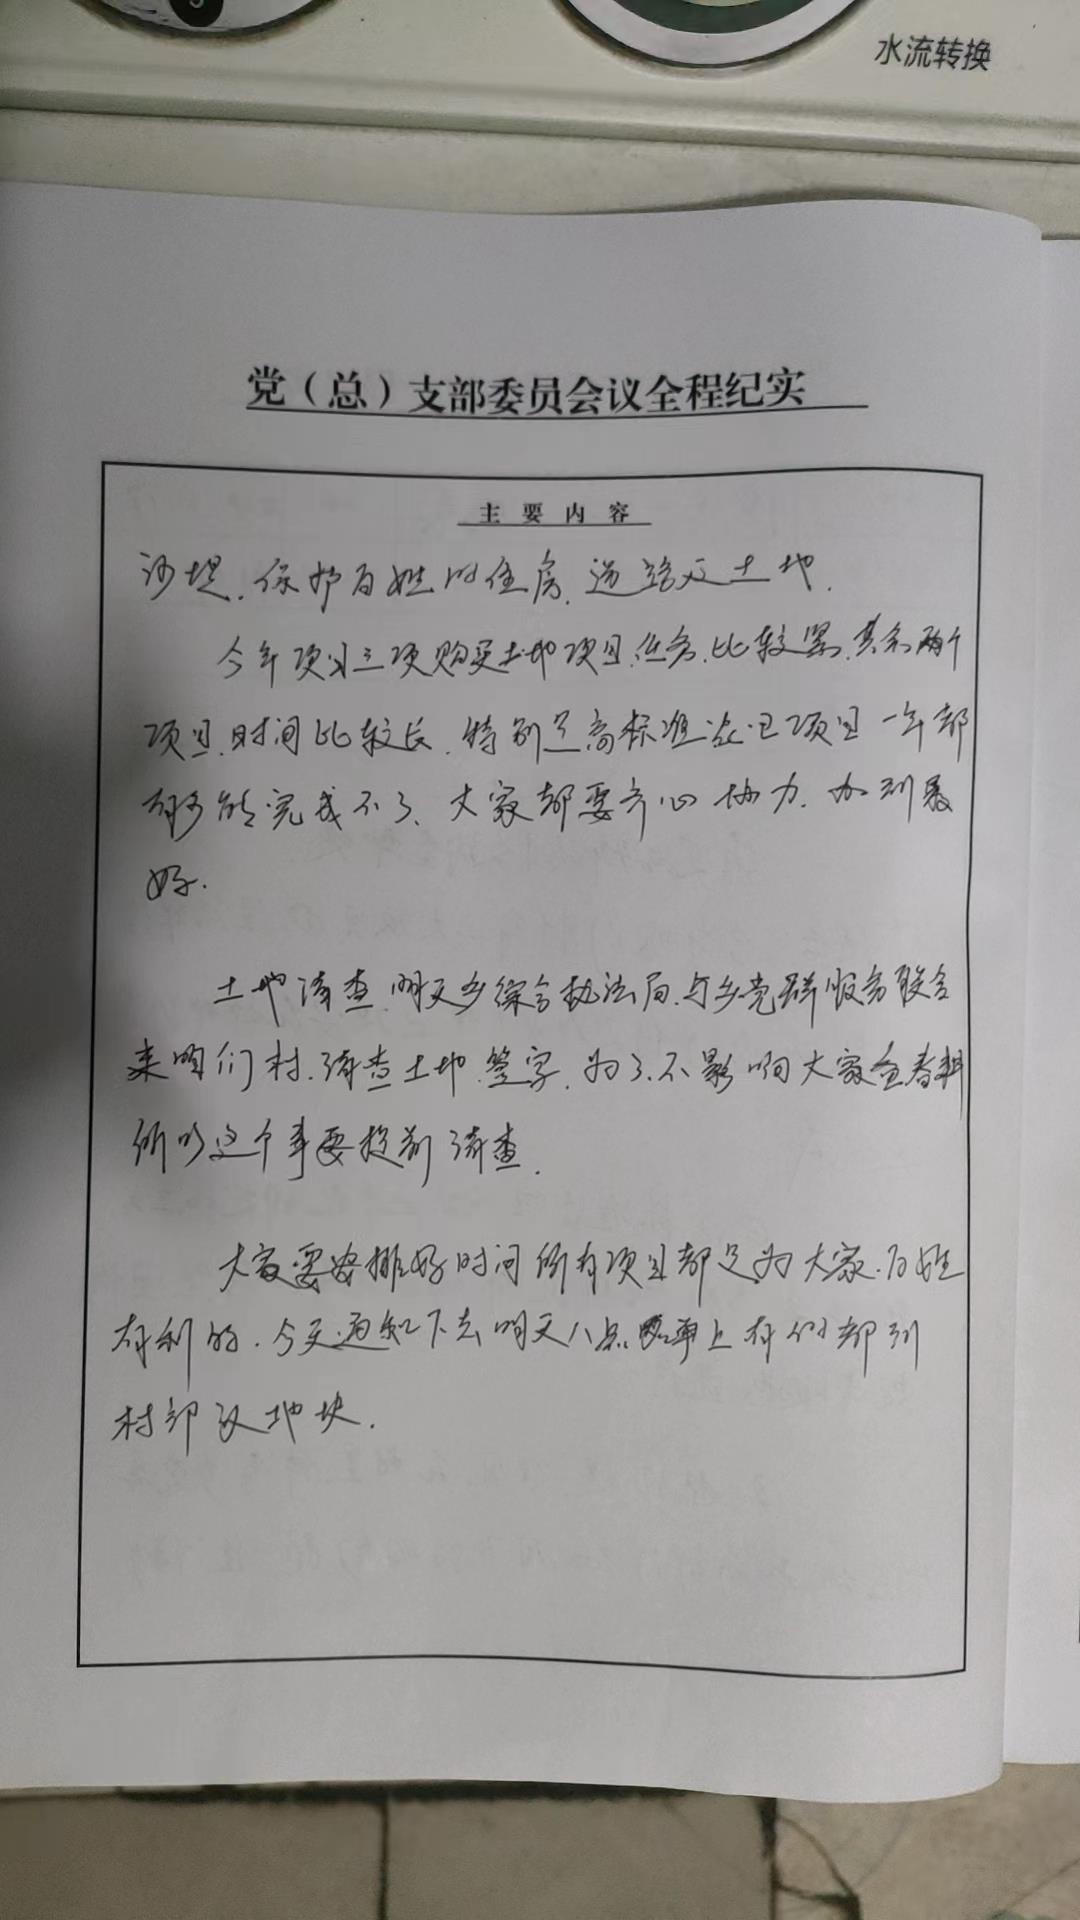 水流转换
党（总）支部委员会议全程纪实
主要内容
沙堤.保护百姓的住房.道路及土地.
今年项目三项购买土地项目.任务.比较紧.其余两个
项目.时间比较长.特别是高标准农田项目一年都
可能完成不了.大家都要齐心协力.办到最
好.
土地清查.明天乡综合执法局.与乡党群服务联合
来咱们村.清查土地.签字.为了.不影响大家春耕
所以这个事要提前清查.
大家要安排好时间所有项目都是为大家.百姓
有利的.今天通知下去明天八点早上有的都到
村部及地块.